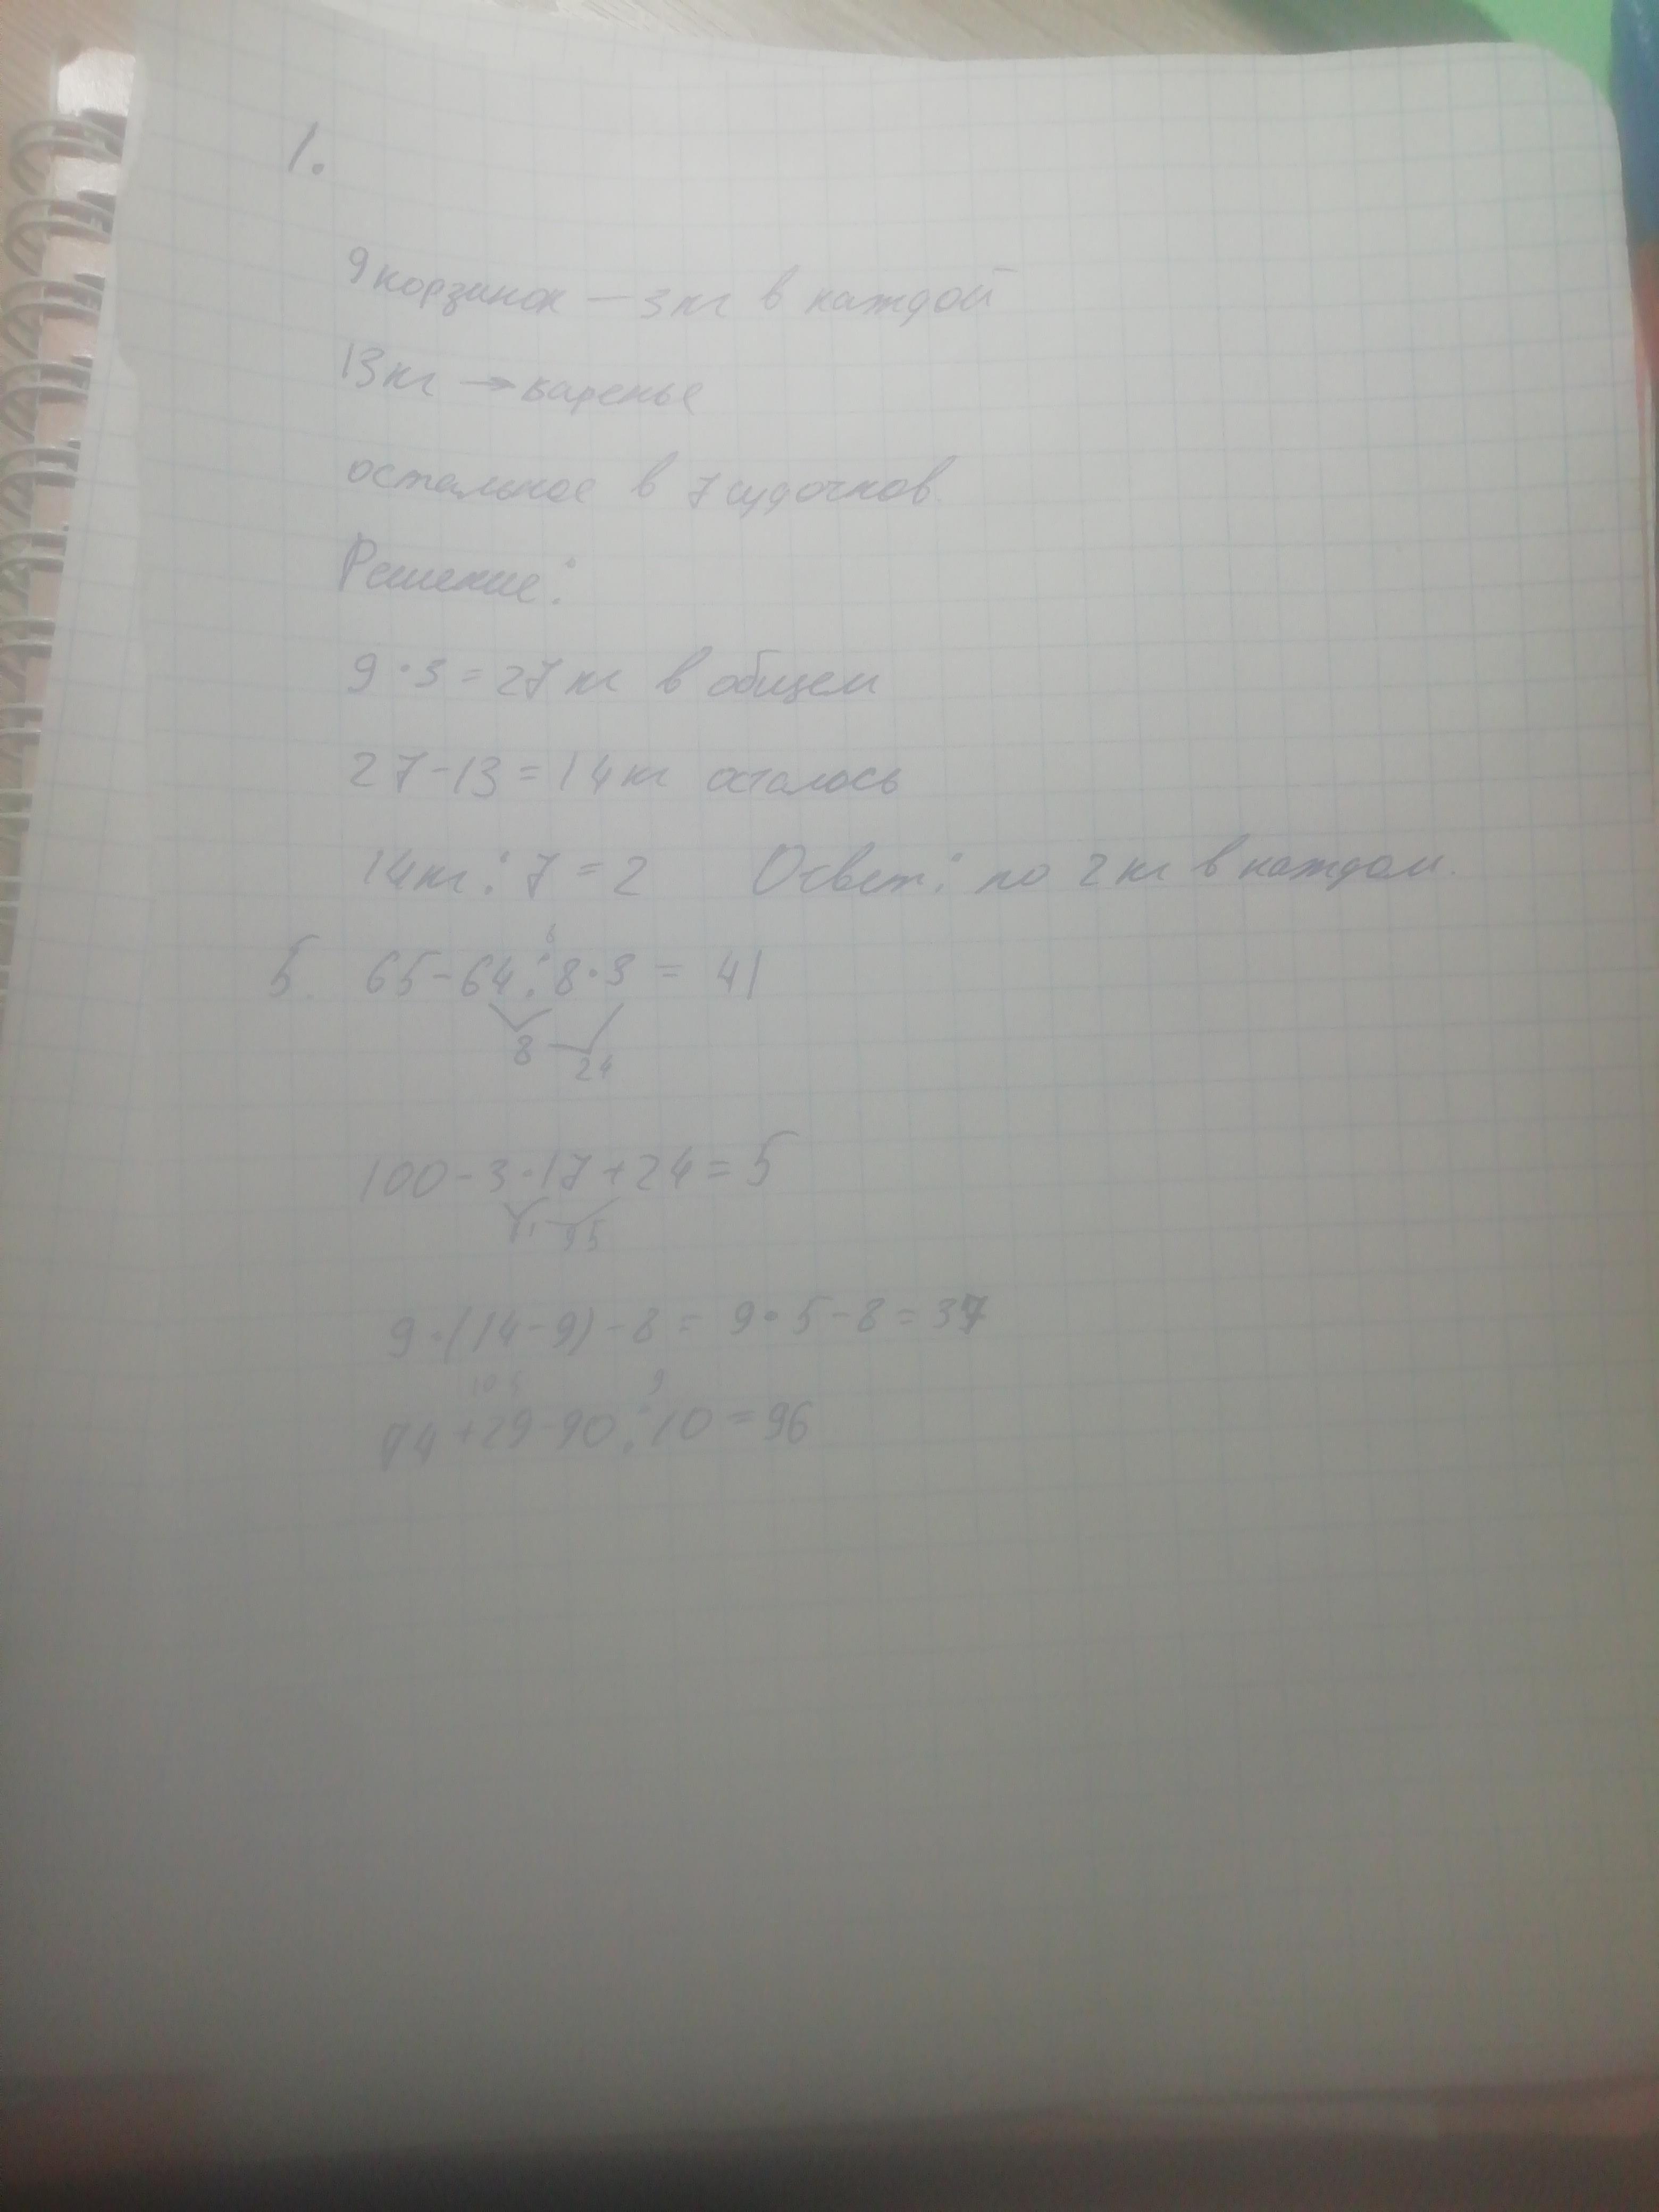 1.
9 корзинок – 3 кг в каждой
13 кг → варенье
остальное в 7 судочков.
Решение:
9 · 3 = 27 кг в общем
27 - 13 = 14 кг осталось
14 кг : 7 = 2 Ответ: по 2 кг в каждом.
5. 65 - 64 : 8 · 3 = 41
8 24
100 - 3 · 17 + 24 = 5
95
9 · (14 - 9) - 8 = 9 · 5 - 8 = 37
9
74 + 29 - 90 : 10 = 96